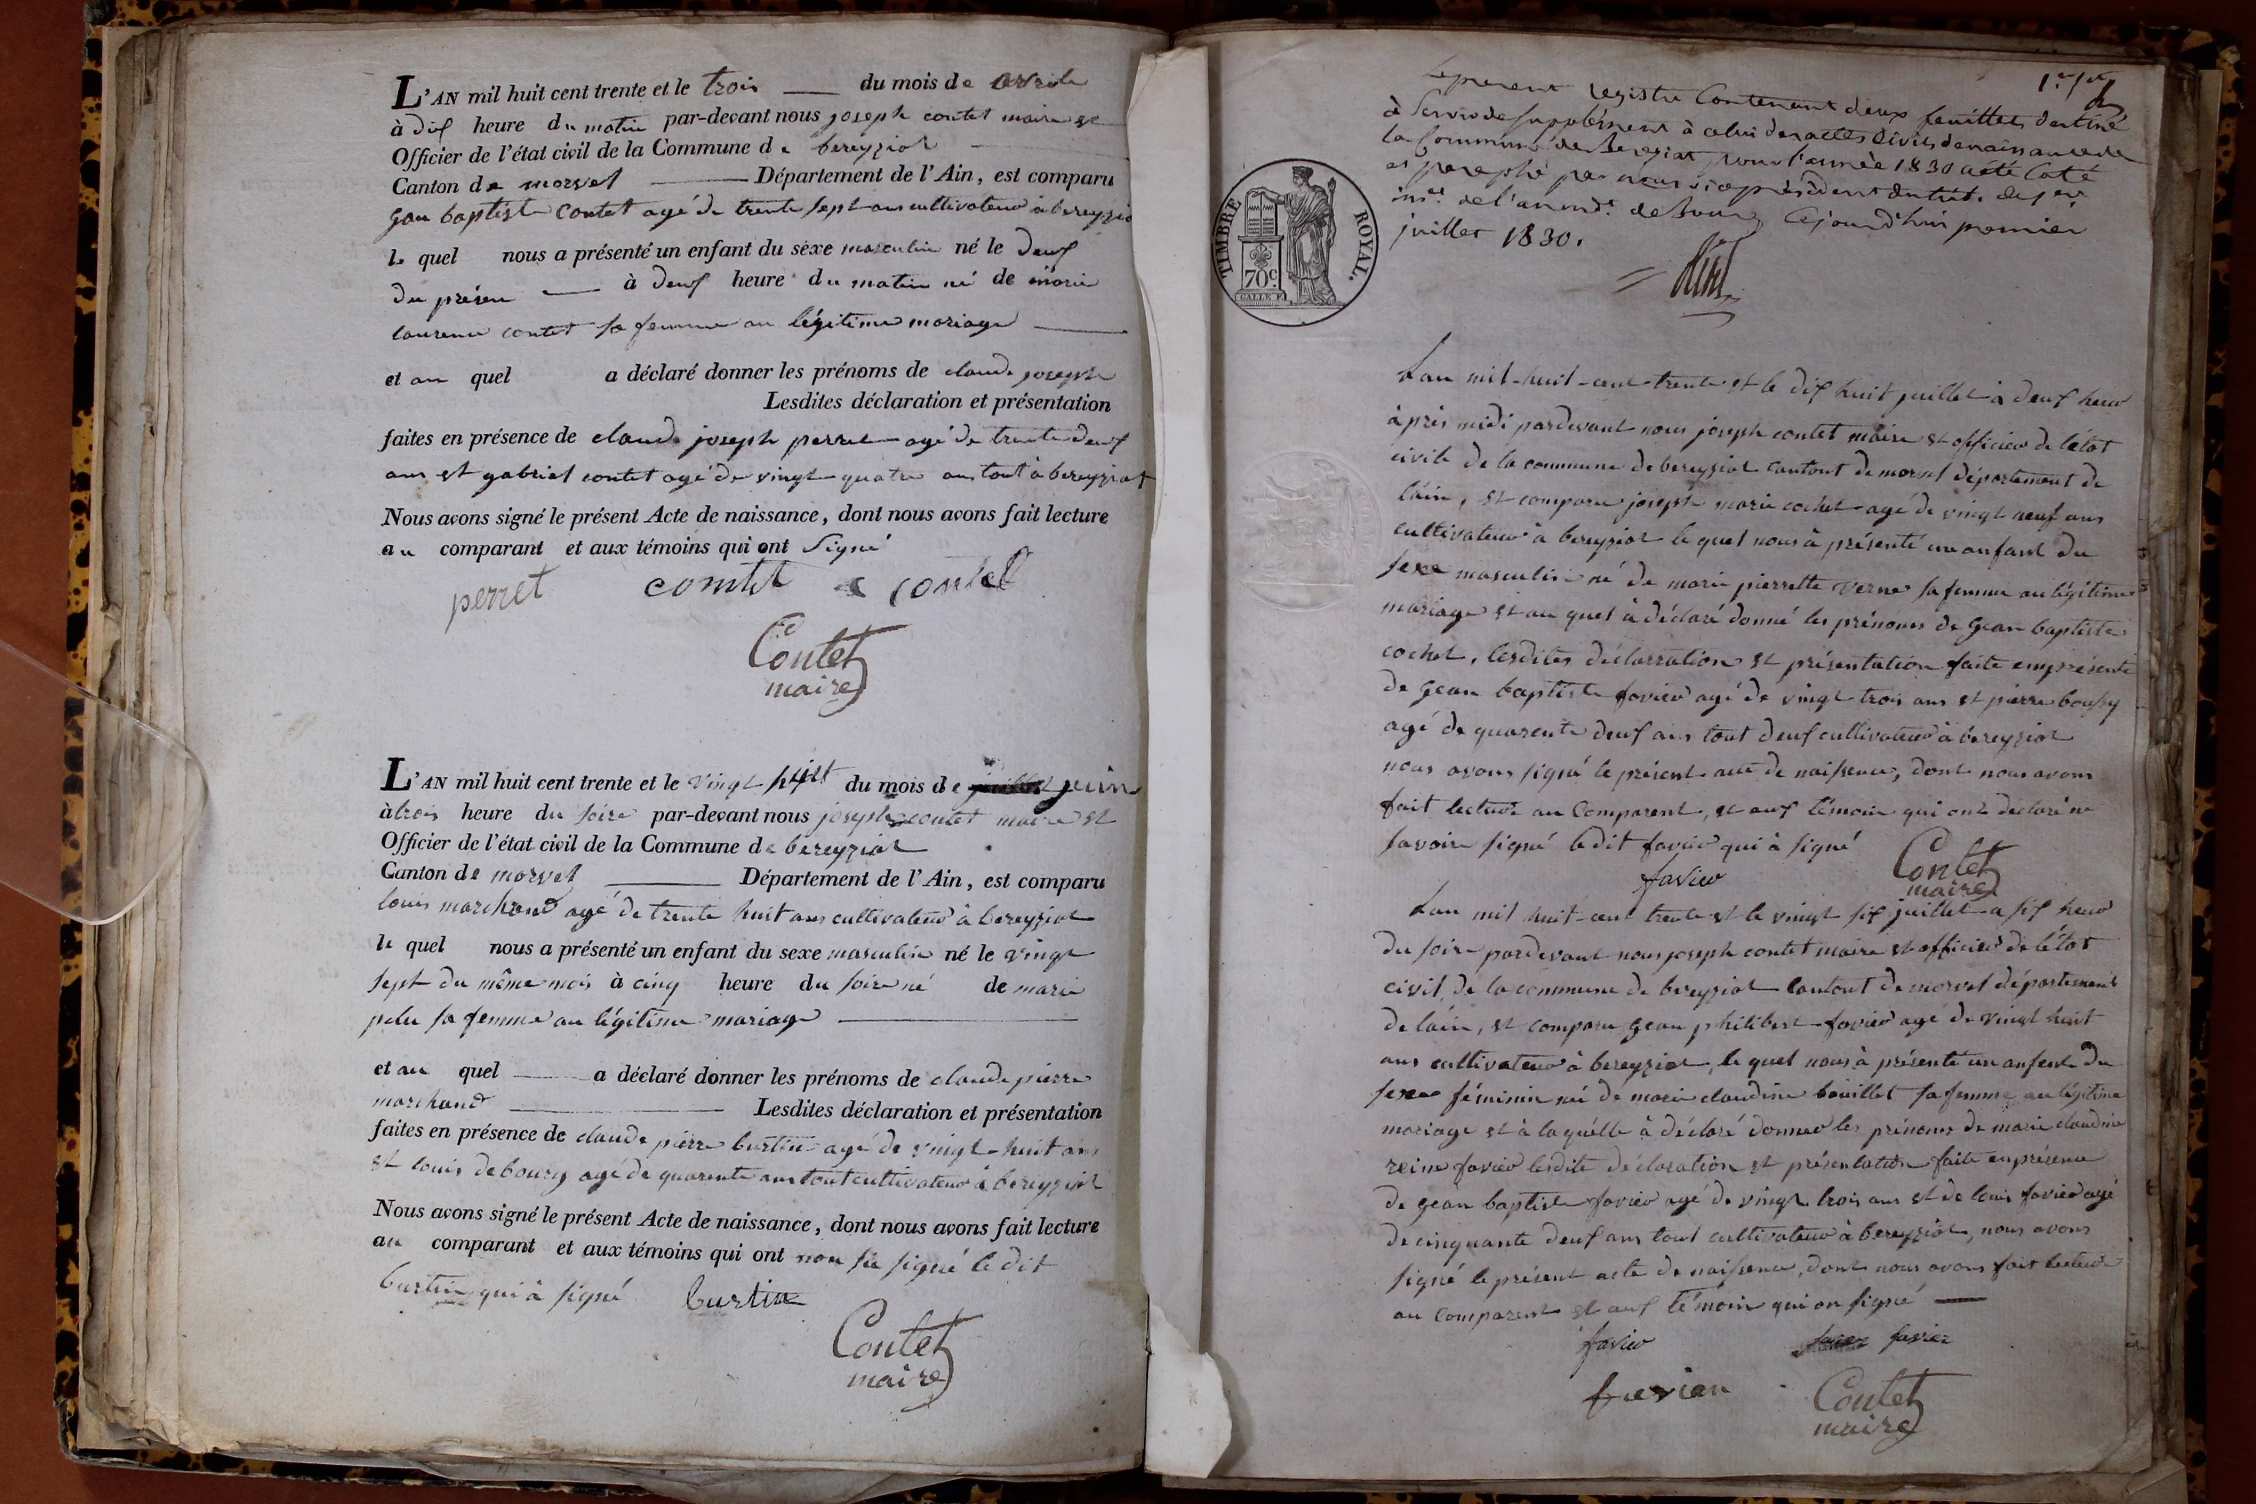 L'AN mil huit cent trente et le trois du mois de avrile
à dix heure du matin par-devant nous joseph contet maire et
Officier de l'état civil de la Commune de bereyziat
Canton de morvel Département de l'Ain, est comparu
gean baptiste contet agé de trente sept ans cultivateur à bereyzia
le quel nous a présenté un enfant du sèxe masculin né le deux
du présen à deux heure du matin né de marie
laurence contet sa femme an légitime mariage
et au quel a déclaré donner les prénoms de claude joseph
Lesdites déclaration et présentation
faites en présence de claude joseph perret agé de trente deux
ans et gabriel contet agé de vingt quatre ans tout à bereyziat
Nous avons signé le présent Acte de naissance, dont nous avons fait lecture
au comparant et aux témoins qui ont signé
perret comtet contet
Contet
maire
L'AN mil huit cent trente et le vingt sept du mois de juillet juin
à trois heure du soire par-devant nous joseph contet maire et
Officier de l'état civil de la Commune de bereyziat
Canton de morvel Département de l'Ain, est comparu
louis marchand agé de trente huit ans cultivateur à bereyziat
le quel nous a présenté un enfant du sexe masculin né le vingt
sept du même mois à cinq heure du soire né de marie
pelu sa femme au légitime mariage
et au quel a déclaré donner les prénoms de claude pierre
marchand Lesdites déclaration et présentation
faites en présence de claude pierre burtin agé de vingt-huit ans
et louis debourg agé de quarente ans tout cultivateur à bereyziat
Nous avons signé le présent Acte de naissance, dont nous avons fait lecture
au comparant et aux témoins qui ont non su signé le dit
burtin qui à signé burtin
Contet
maire
Le present registre Contenant deux feuillets destiné
à Servir de supplément à celui des actes Civils de naissance de
la Commune de Bereziat, pour l'année 1830 a été Coté
et paraphé par nous vice président du trib. de pere
inse. de l'arrondt. de Bourg Cejourd'hui premier
juillet 1830.
TIMBRE ROYAL.
70c
Lan mil-huit-cent-trente et le dix huit juillet à deux heur
à près midi pardevant nous joseph contet maire et officier de létat
civile de la commune de bereyziat cantont de morvel département de
láin, et comparu joseph marie cochet agé de vingt neuf ans
cultivateur à bereyziat le quel nous à présenté un anfant du
sexe masculin né de marie pierrette verne sa femme au légitime
mariage et au quel à déclaré donné les prénoms de gean baptiste
cochet, lesdites déclarration et présentation faite en présente
de gean baptiste favier agé de vingt trois ans et pierre boussy
agé de quarente deux ans tout deux cultivateur à bereyziat
nous avons signé le présent acte de naissence, dont nous avons
fait lecture au Comparent, et aux témoin qui ont déclaré ne
savoire signé ledit favier qui à signé
favier Contet
maire
Lan mil huit-cent trente et le vingt six juillet a six heur
du soire pardevant nous joseph contet maire et officier de létat
civil de la commune de bereyziat Cantont de morvel département
de láin, et comparu gean philibert favier agé de vingt huit
ans cultivateur à bereyziat, le quel nous à présenté un anfent du
sexe féminin né de marie claudine bouillet sa femme au légitime
mariage et à laquélle à déclaré donner les prénoms de marie claudine
reine favier lesdite déclaration et présentation faite en présence
de gean baptiste favier agé de vingt trois ans et de louis favier agé
de cinquante deux ans tout cultivateur à bereyziat, nous avons
signé le présent acte de naissence, dont nous avons fait lecture
au comparent et aux témoin qui on signé
favier favier
favier Contet
maire